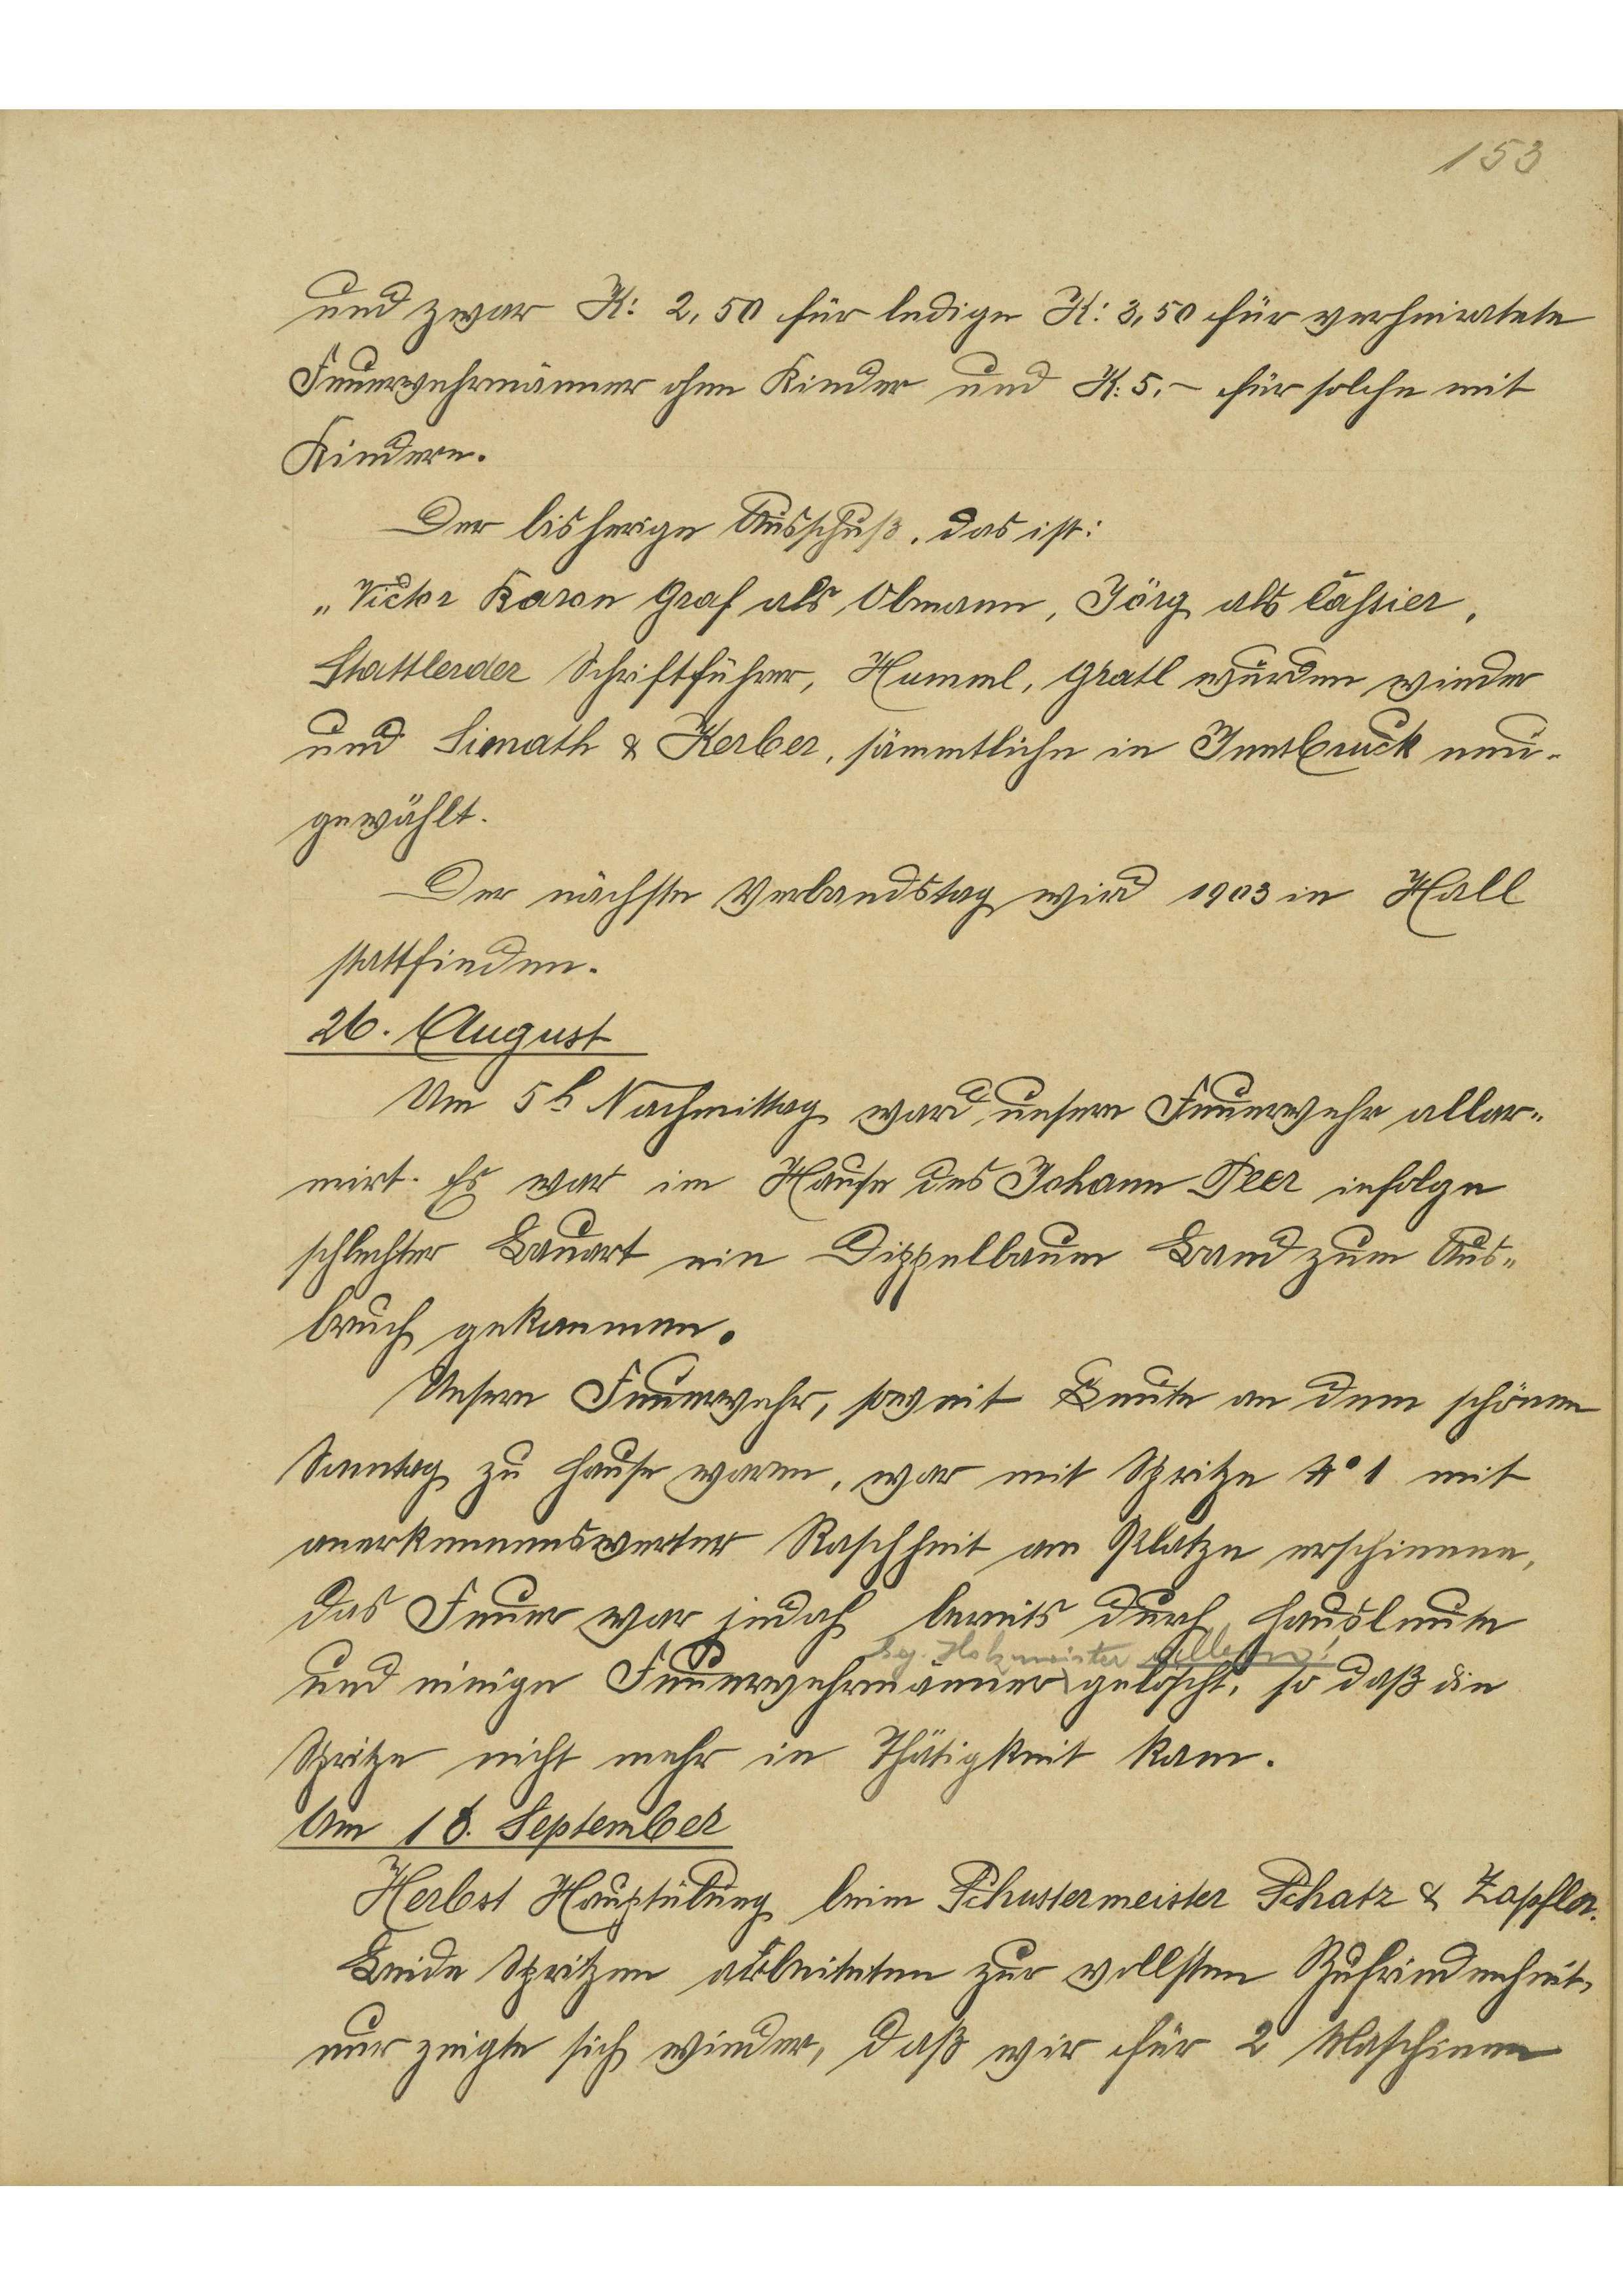 153
und zwar K: 2,50 für ledige K: 3,50 für verheiratete
Feuerwehrmänner ohne Kinder und K: 5.– für solche mit
Kindern.
Der bisherige Ausschuß, das ist:
„Victor Baron Graf als Obmann, Jörg als Cassier,
Stattlerder Schriftführer, Hummel, Gratl wurden wieder
und Simath & Kerber, sämmtliche in Innsbruck neu-
gewählt.
Der nächste Verbandstag wird 1903 in Hall
stattfinden.
26. August
Um 5h Nachmittag ward unsere Feuerwehr allar-
mirt. Es war im Hause des Johann Peer infolge
schlechter Bauart ein Dippelbaum Brand zum Aus-
bruch gekommen.
Unsere Feuerwehr, soweit Leute an dem schönen
Sonntag zu Hause waren, war mit Spritze No 1 mit
anerkennenswerter Raschheit am Platze erschienen,
das Feuer war jedoch bereits durch Hausleute
Holzmeister allein!
und einige Feuerwehrmänner gelöscht, so daß die
Spritze nicht mehr in Thätigkeit kam.
Am 18. September
Herbst Hauptübung beim Schustermeister Schatz & Zapfler.
Beide Spritzen arbeiteten zur vollsten Zufriedenheit,
nur zeigte sich wieder, daß wir für 2 Maschinen